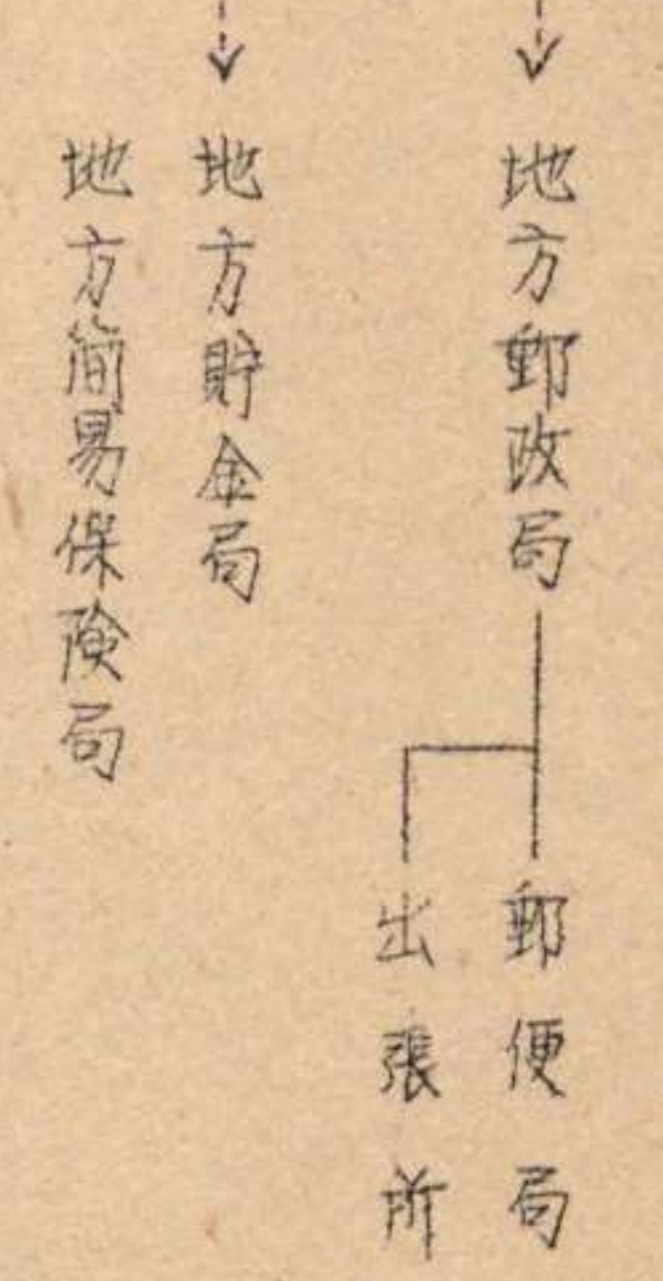 地方郵政局
郵便局
出張所
地方貯金局
地方簡易保険局